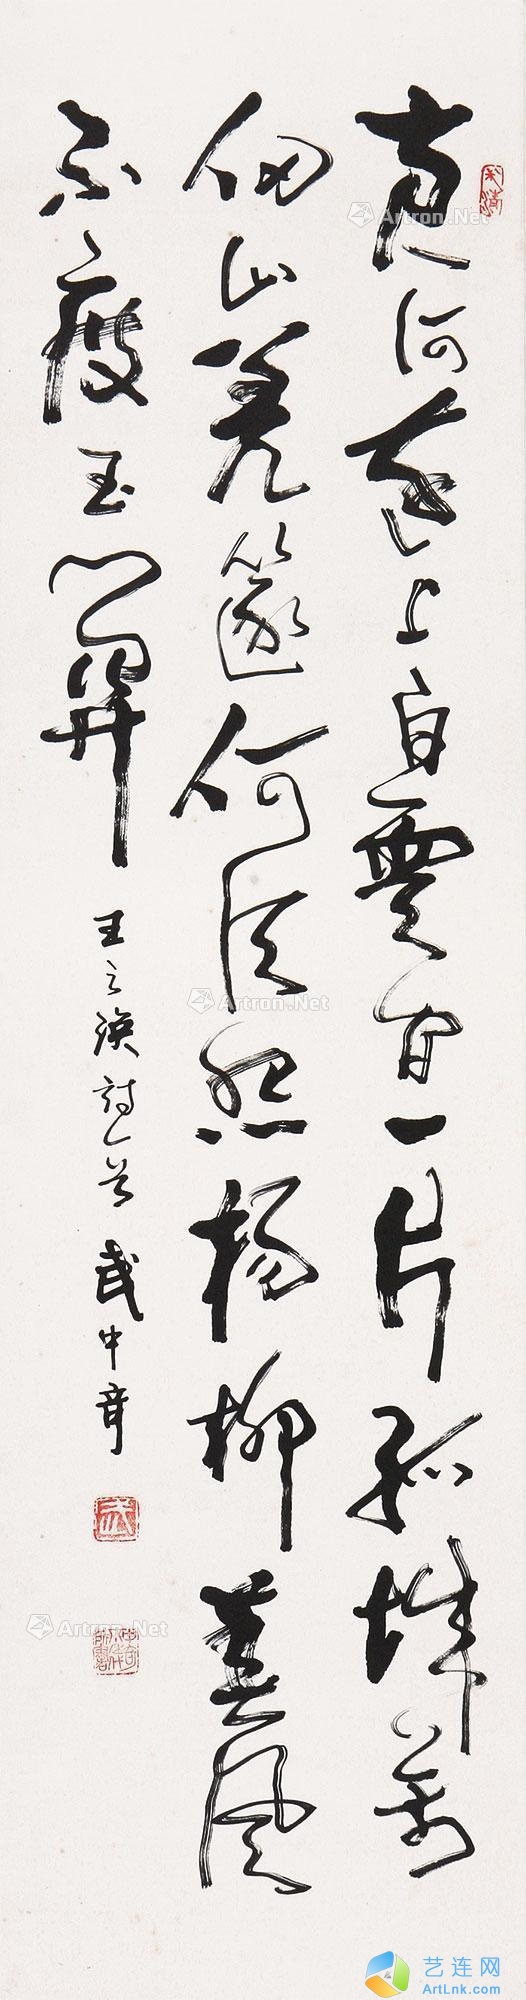 黄河遠上白雲間一片孤城萬
仞山羌篴何須怨楊柳春風
不度玉關
王之渙詩一首 武中奇
武
Artron.Net
Artron.Net
Artron.Net
艺连网
ArtLnk.com